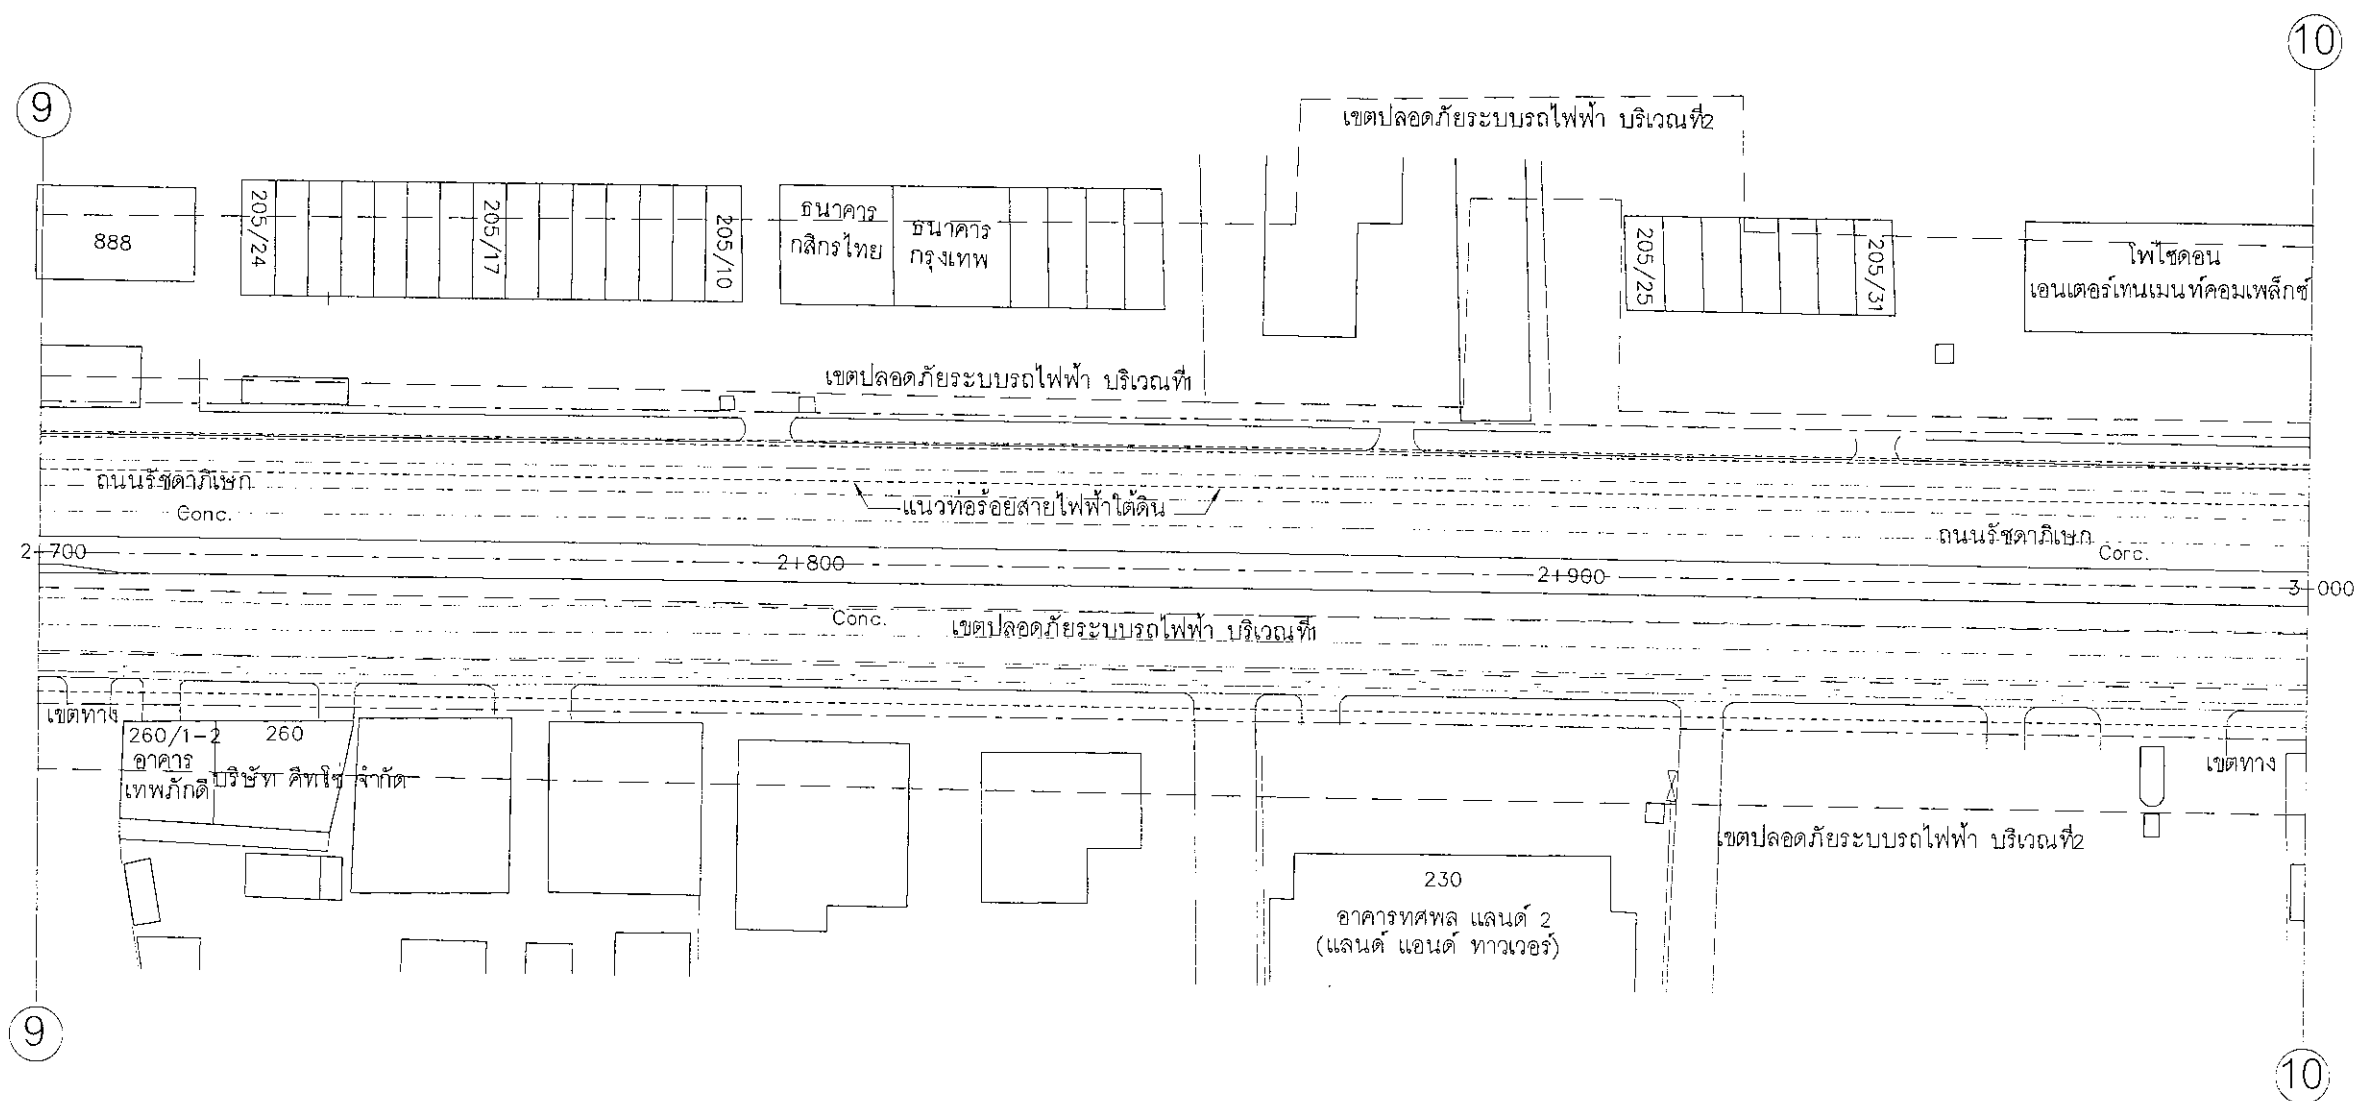 10
9
เขตปลอดภัยระบบรถไฟฟ้า บริเวณที่2
888
205/24
205/17
205/10
ธนาคาร
กสิกรไทย
ธนาคาร
กรุงเทพ
205/25
205/31
โพไซดอน
เอนเตอร์เทนเมนท์คอมเพล็กซ์
เขตปลอดภัยระบบรถไฟฟ้า บริเวณที่1
ถนนรัชดาภิเษก
Conc.
แนวท่อร้อยสายไฟฟ้าใต้ดิน
ถนนรัชดาภิเษก
Conc.
2+700
2+800
2+900
3+000
Conc.
เขตปลอดภัยระบบรถไฟฟ้า บริเวณที่1
เขตทาง
260/1-2
อาคาร
เทพภักดี
260
บริษัท คิทโซ่ จำกัด
เขตทาง
เขตปลอดภัยระบบรถไฟฟ้า บริเวณที่2
230
อาคารทศพล แลนด์ 2
(แลนด์ แอนด์ ทาวเวอร์)
9
10